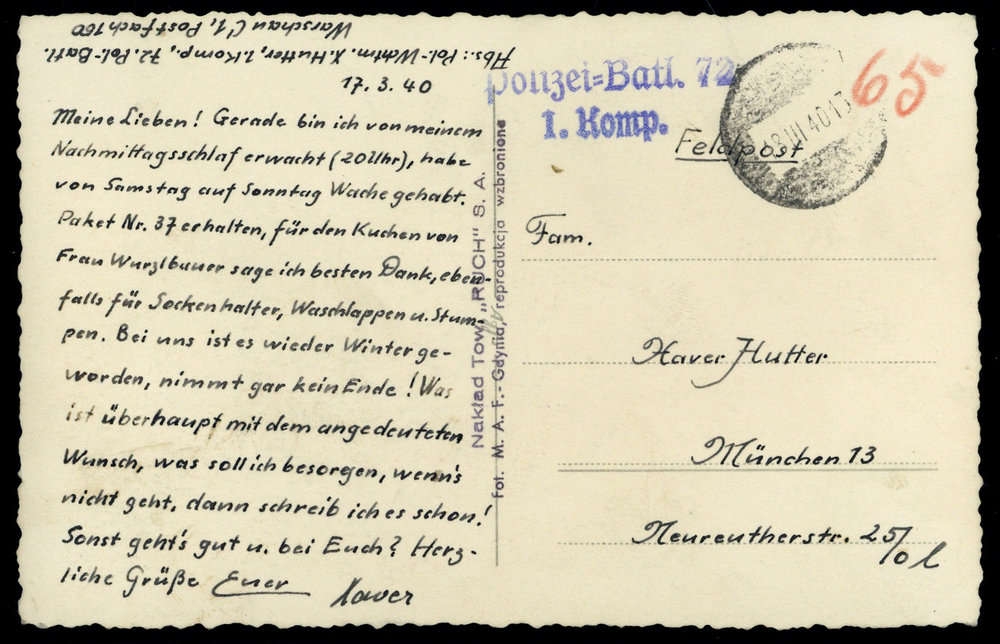 Abs.: Pol.-Wchtm. X. Hutter, 1. Komp., 72. Pol-Batl.
Warschau C 1, Postfach 160
17. 3. 40
Meine Lieben! Gerade bin ich von meinem
Nachmittagsschlaf erwacht (20 Uhr), habe
von Samstag auf Sonntag Wache gehabt.
Paket Nr. 37 erhalten, für den Kuchen von
Frau Wurzlbauer sage ich besten Dank, eben-
falls für Sockenhalter, Waschlappen u. Stum-
pen. Bei uns ist es wieder Winter ge-
worden, nimmt gar kein Ende! Was
ist überhaupt mit dem angedeuteten
Wunsch, was soll ich besorgen, wenn's
nicht geht, dann schreib ich es schon!
Sonst geht's gut u. bei Euch? Herz-
liche Grüße Euer Xaver
Nakład Tow. „RUCH" S. A.
Fot. M. A. F. - Gdynia, reprodukcja wzbronione
Polizei=Batl. 72
1. Komp.
Feldpost
18 III 40 13
65
Fam.
Xaver Hutter
München 13
Neureutherstr. 25/0 l